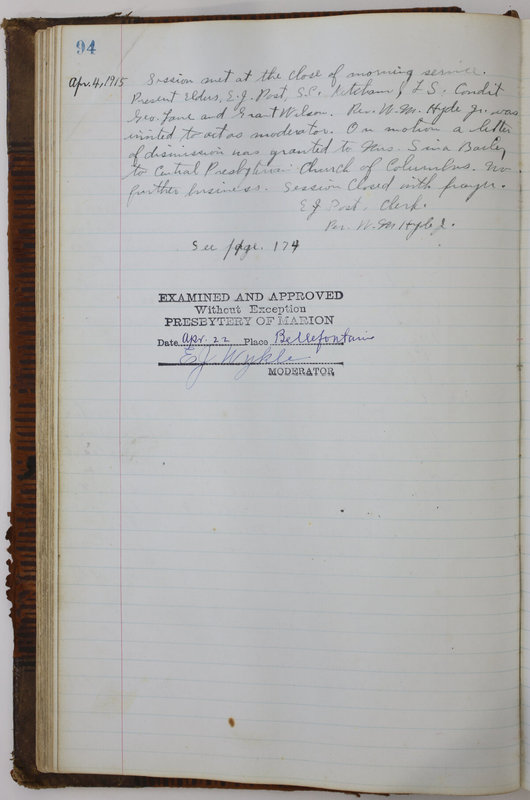 94
Apr. 4, 1915 Session met at the close of morning service.
Present Elders, E.J. Post, S.C. Ketcham, L.S. Condit
Geo. Jane and Grant Wilson. Rev. W.M. Hyde Jr. was
invited to act as moderator. On motion a letter
of dismission was granted to Mrs. Sina Bailey
to Central Presbyterian Church of Columbus. No
further business. Session closed with prayer.
E J Post, Clerk.
Rev. W. M Hyde J.
See page. 174
EXAMINED AND APPROVED
Without Exception
PRESBYTERY OF MARION
Date Apr. 22 Place Bellefontaine
E J Wykle
MODERATOR